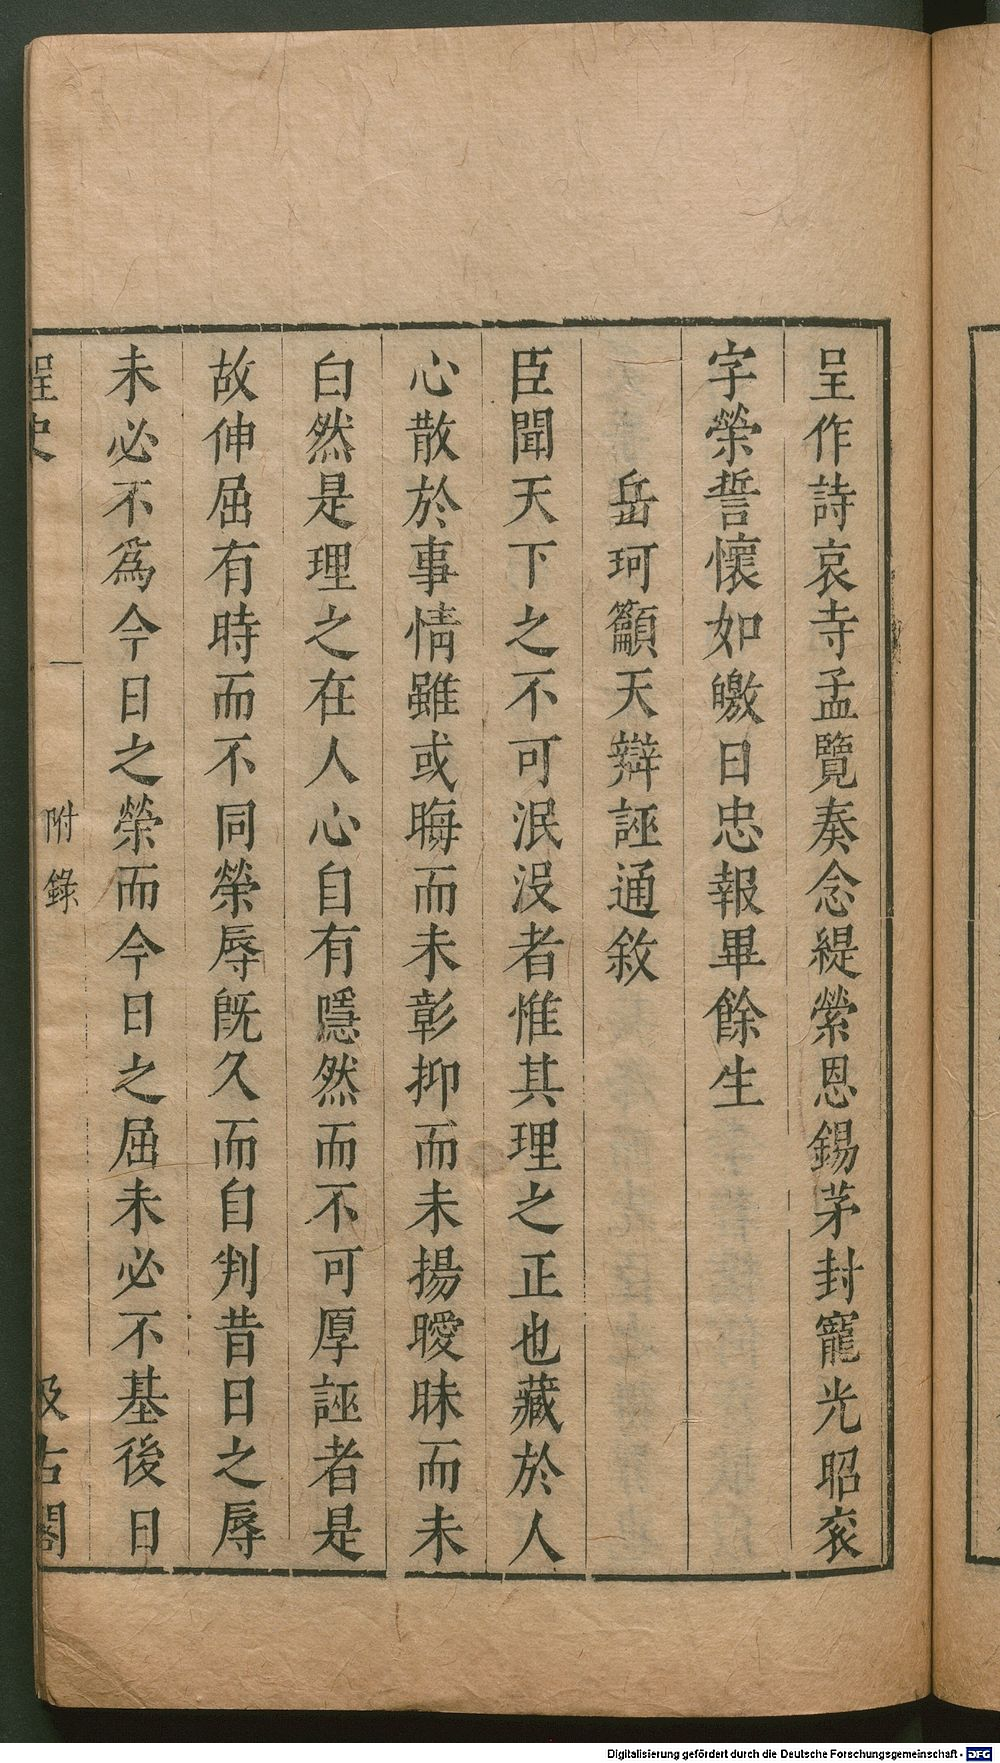 呈作詩哀寺孟覽奏念緹縈恩錫茅封寵光昭衮
字榮誓懷如皦日忠報畢餘生
岳珂籲天辯誣通敘
臣聞天下之不可泯沒者惟其理之正也藏於人
心散於事情雖或晦而未彰抑而未揚曖昧而未
白然是理之在人心自有隱然而不可厚誣者是
故伸屈有時而不同榮辱旣久而自判昔日之辱
未必不為今日之榮而今日之屈未必不基後日
桯史
附錄
汲古閣
Digitalisierung gefördert durch die Deutsche Forschungsgemeinschaft - DFG